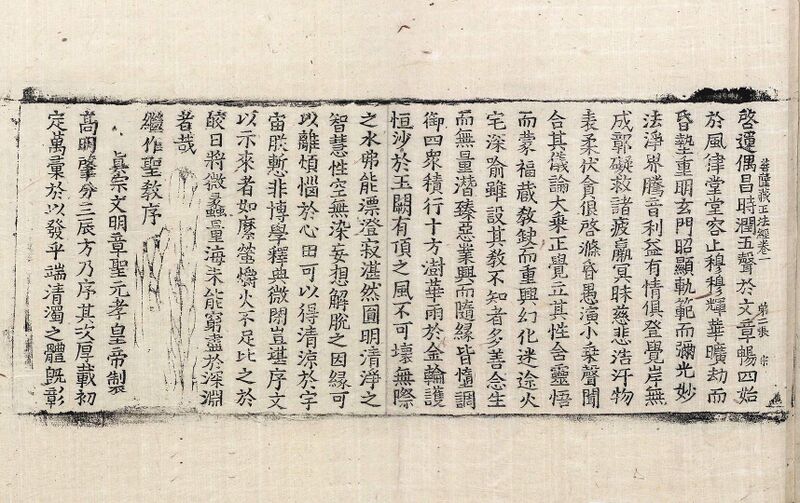 啓運偶昌時潤五聲於文章暢四始
菩薩藏正法經卷一 第二張 宗
於風律堂堂容止穆穆輝華曠劫而
昏墊重明玄門昭顯軌範而彌光妙
法淨界騰音利益有情俱登覺岸無
成鄣礙救諸疲羸冥昧慈悲浩汗物
表柔伏貪很啓滌昏愚演小乘聲聞
合其儀論大乘正覺立其性含靈悟
而蒙福藏教缺而重興幻化迷途火
宅深喻雖設其教不知者多善念生
而無量潛臻惡業興而隨緣皆墮調
御四衆積行十方澍華雨於金輪護
恒沙於玉闕有頂之風不可壞無際
之水弗能漂澄寂湛然圓明清淨之
智慧性空無染妄想解脫之因緣可
以離煩惱於心田可以得清涼於宇
宙朕慙非博學釋典微閑豈堪序文
以示來者如縻螢爝火不足比之於
皎日將微蠡量海未能窮盡於深淵
者哉
繼作聖教序
眞宗文明章聖元孝皇帝製
高明肇分三辰方乃序其次厚載初
定萬彙於以發乎端清濁之體旣彰